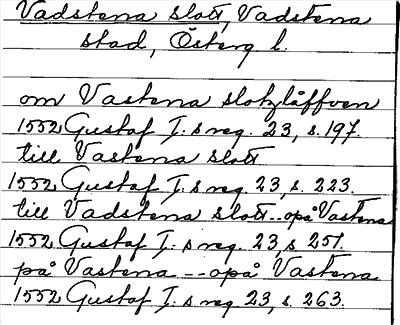 Vadstena slott, Vadstena
stad, Österg l.
om Vastena slotzlåffven
1552 Gustaf I:s reg. 23, s. 197.
till Vastena slott
1552 Gustaf I:s reg. 23, s. 223.
till Vadstena slott -- opå Vastena
1552 Gustaf I:s reg. 23, s 251.
på Vastena -- opå Vastena
1552 Gustaf I:s reg. 23, s. 263.